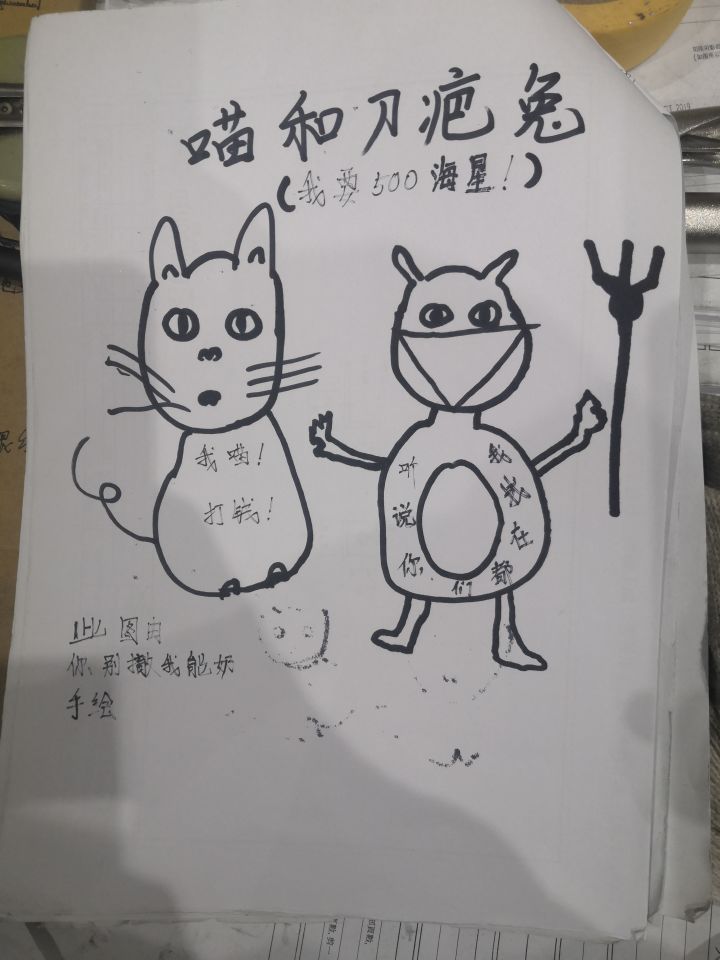 喵和刀疤兔
(我要500海星!)
我喵!
打钱!
听说你们都在找我
此图由
你别撤我能奶
手绘
2019